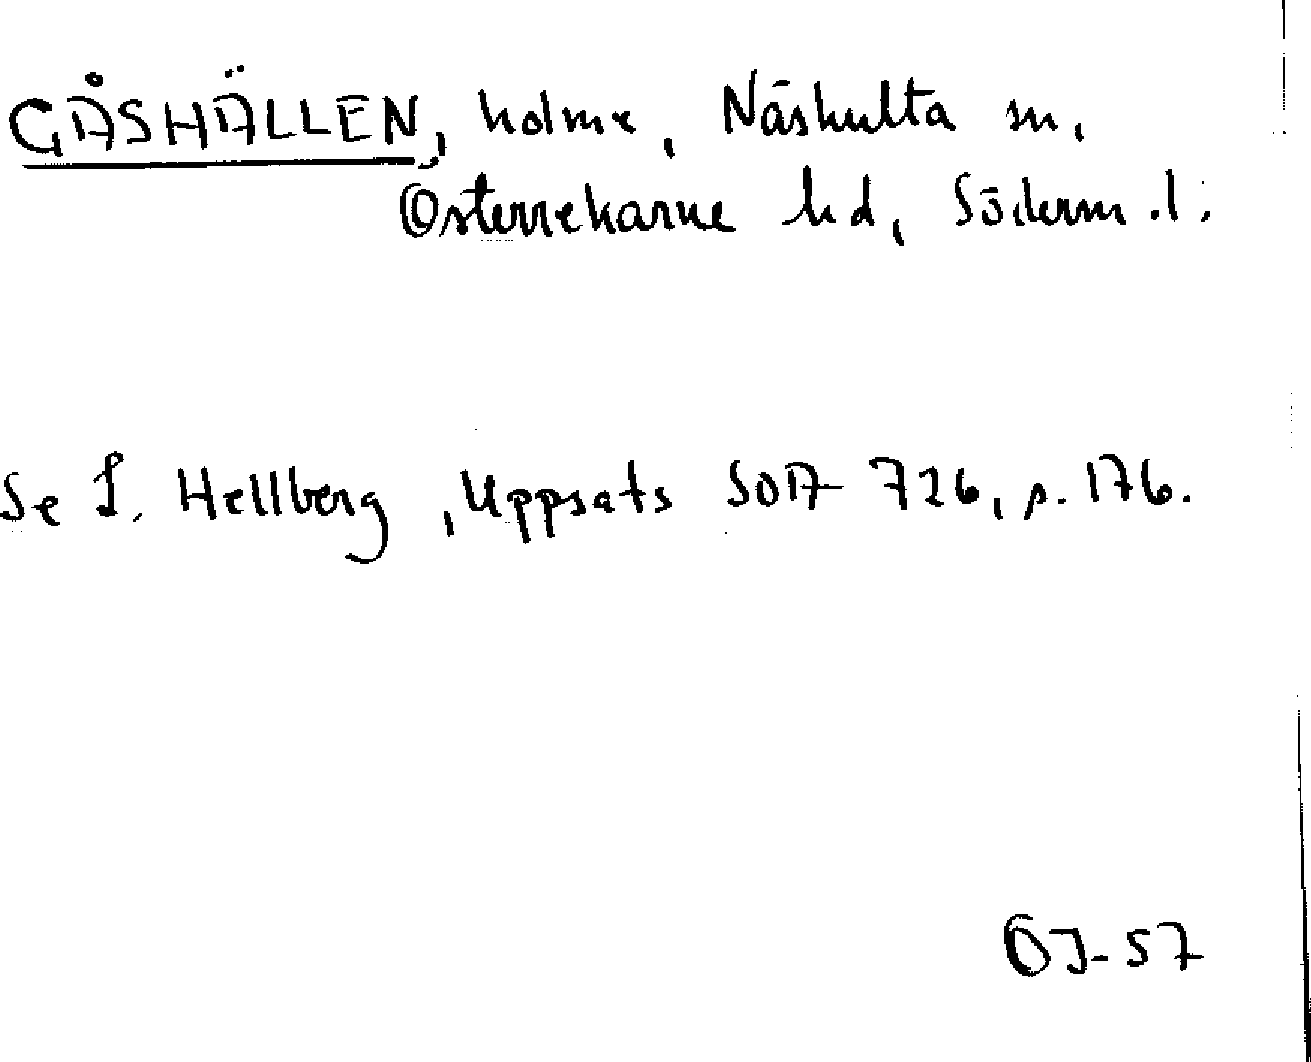 GÅSHÄLLEN, holme, Näshulta sn,
Österrekarne hd, Söderm.l.
Se L. Hellberg, Uppsats SOA 726, s. 176.
ÖJ-57